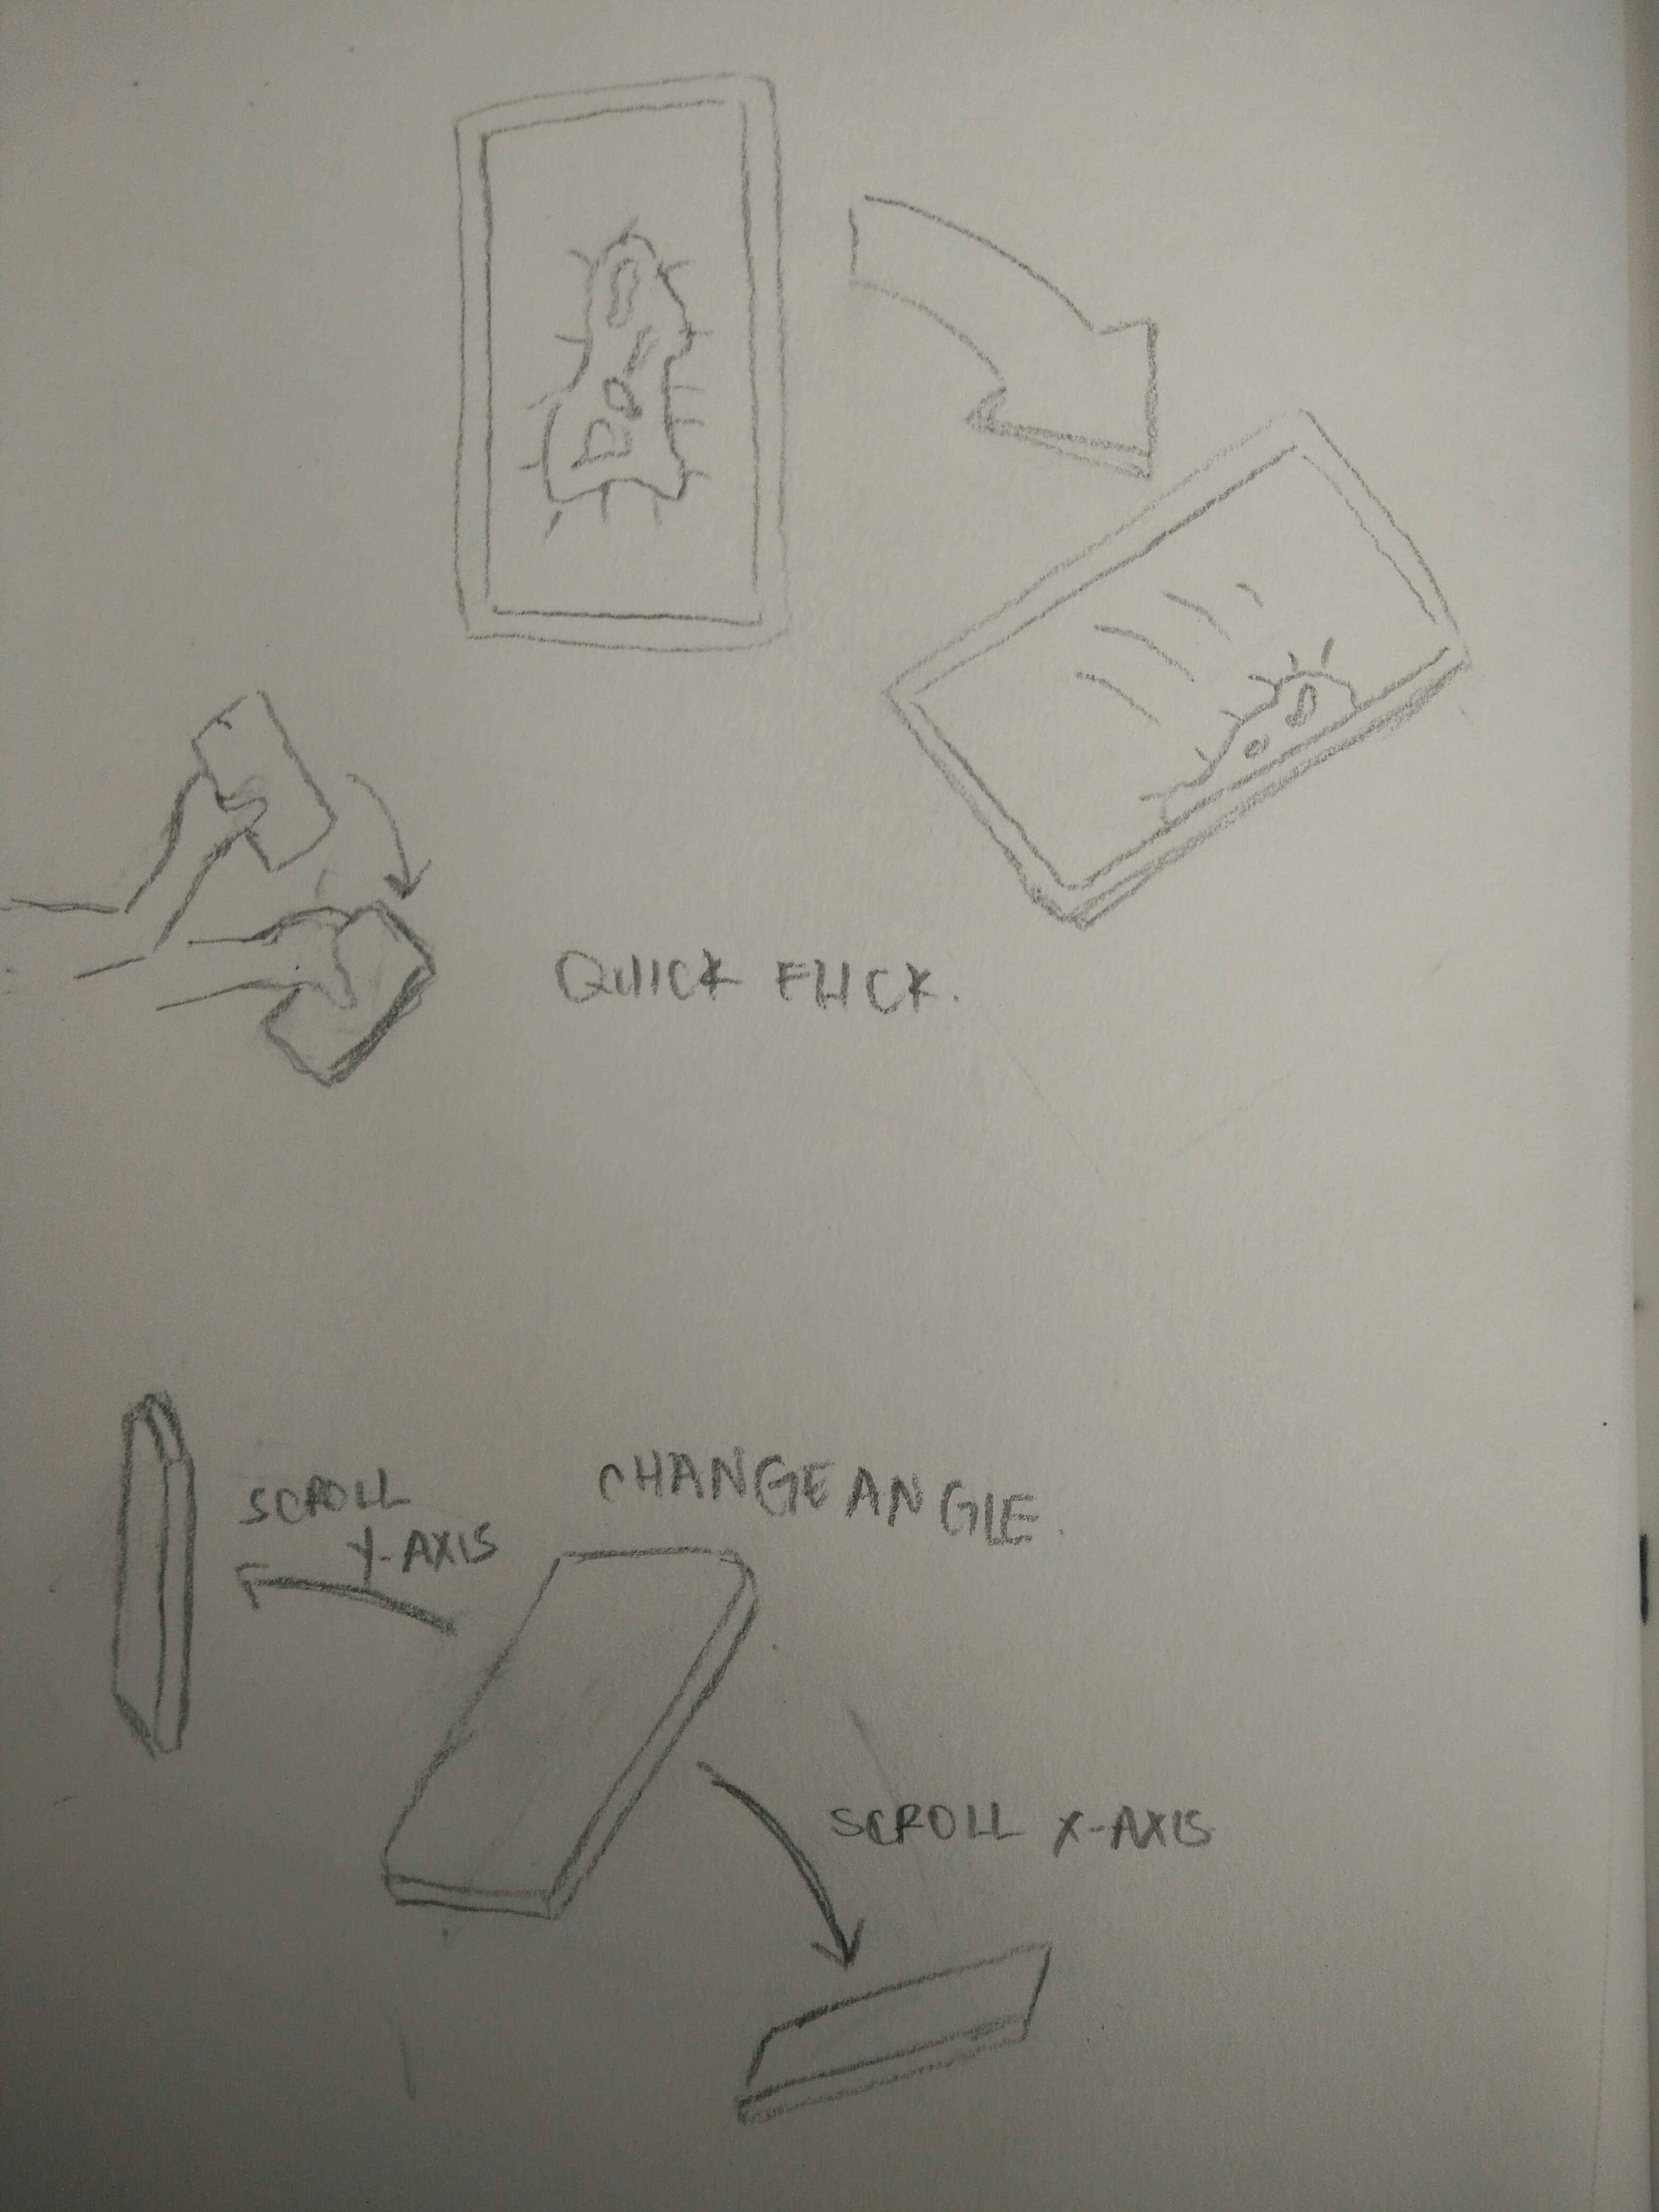 QUICK FLICK.
CHANGE ANGLE.
SCROLL
Y-AXIS
SCROLL X-AXIS